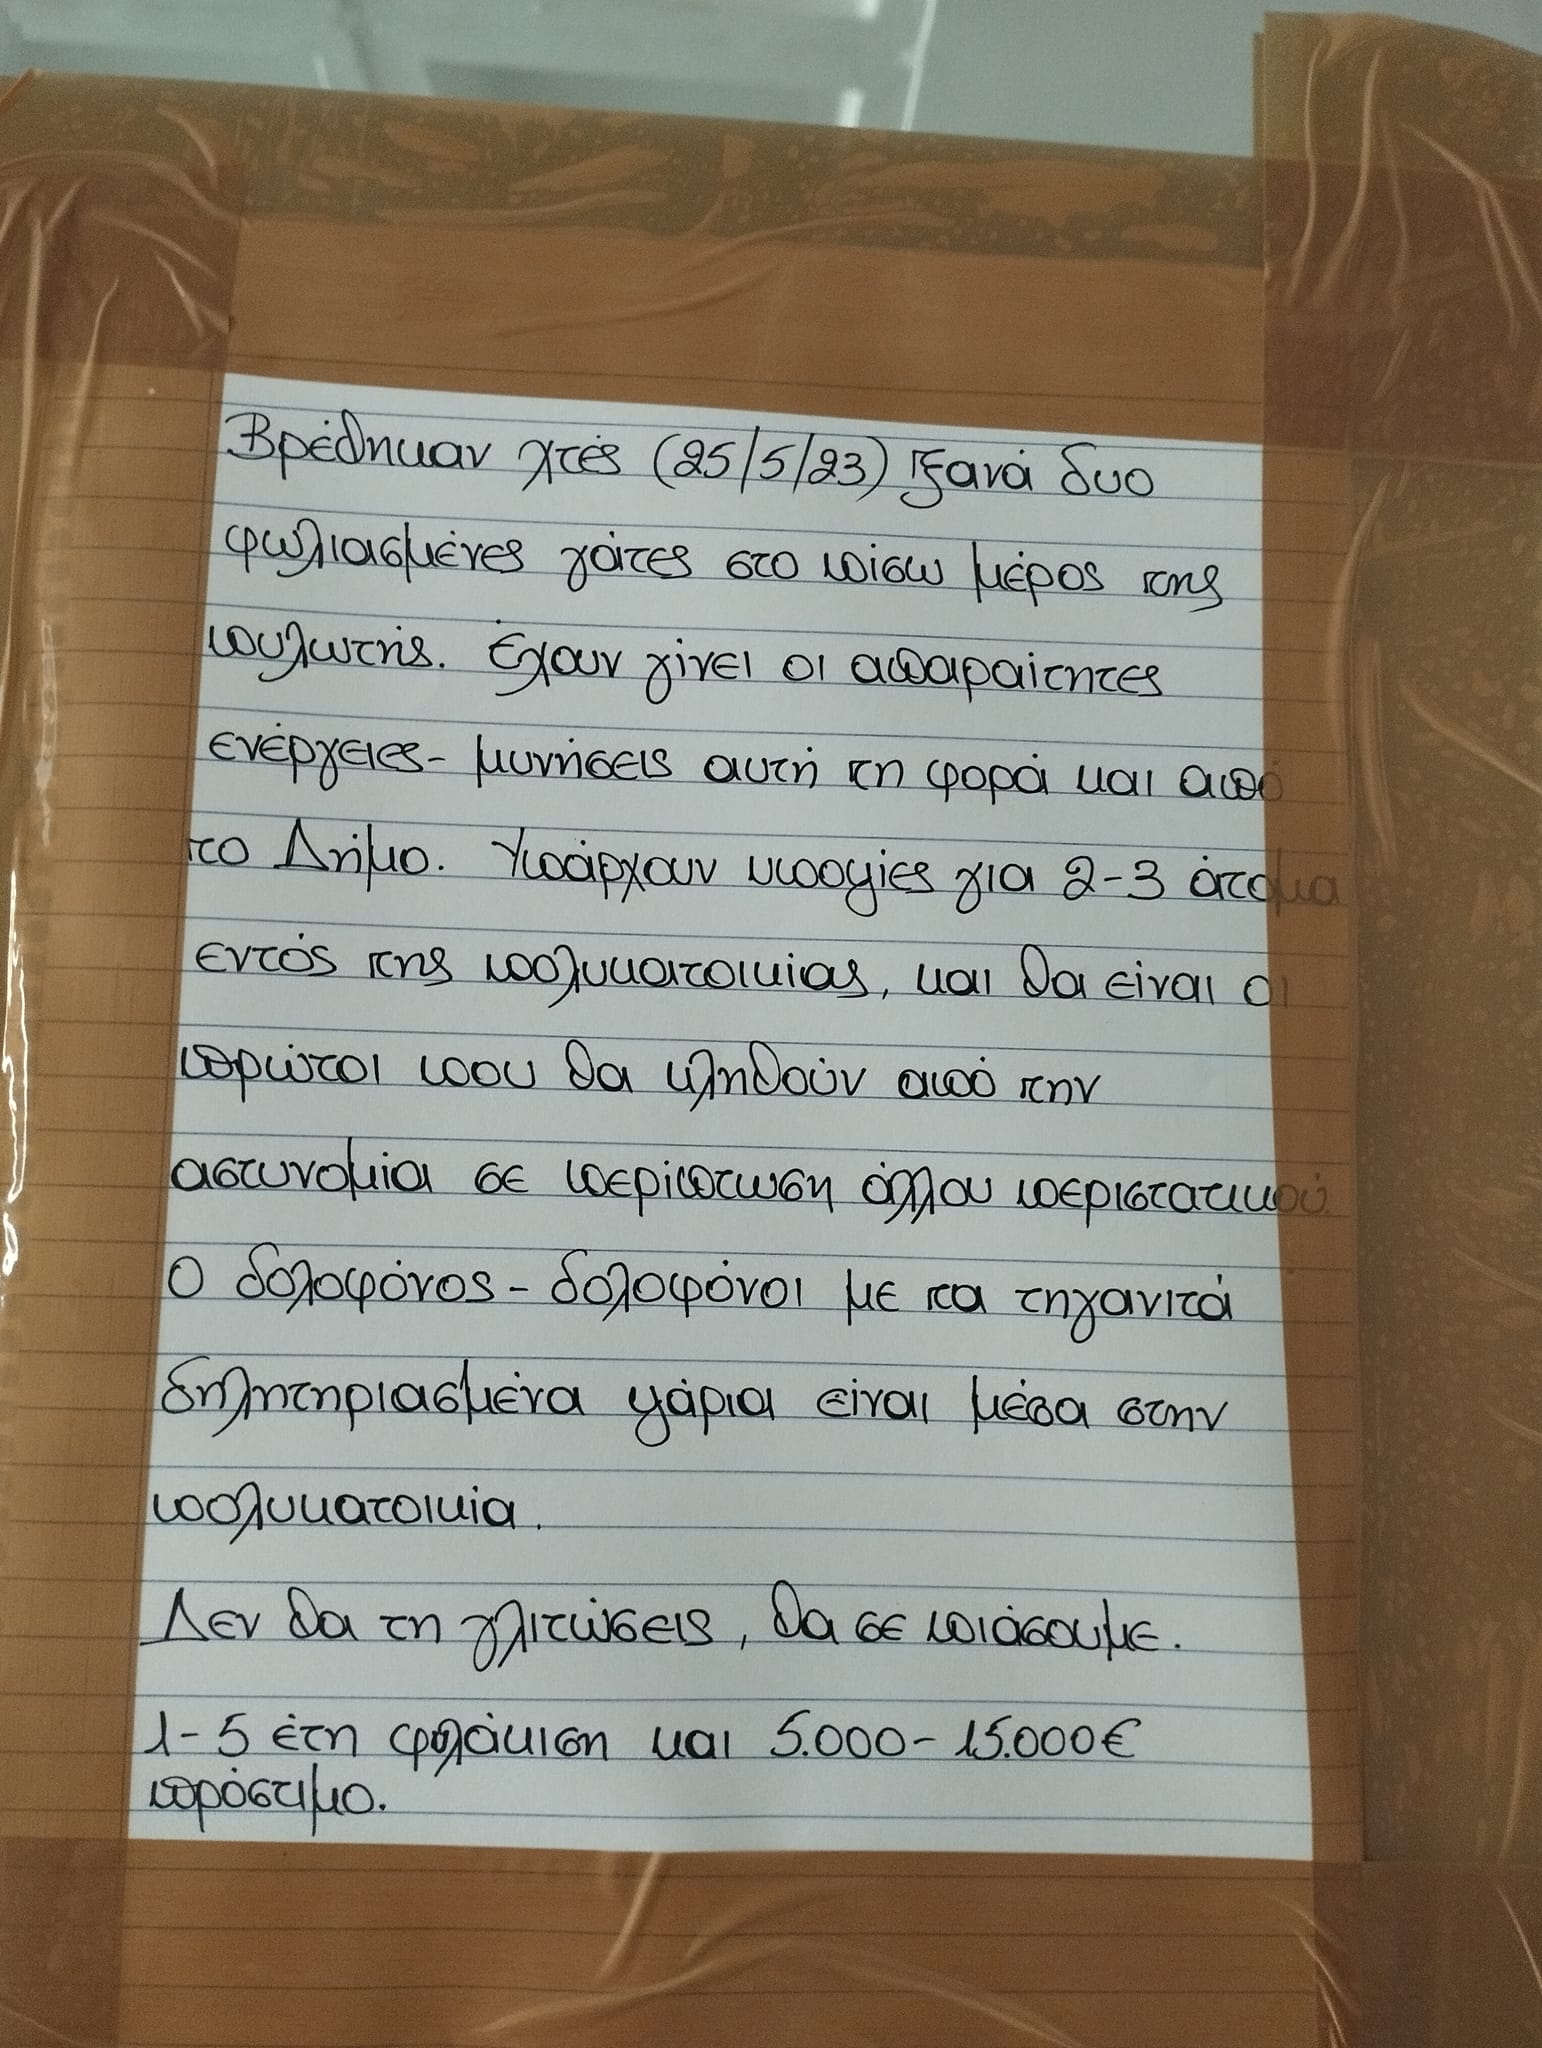 Βρέθηκαν χτές (25/5/23) ξανά δυο
φωλιασμένες γάτες στο πίσω μέρος της
πυλωτής. Έχουν γίνει οι απαραίτητες
ενέργειες- μυνήσεις αυτή τη φορά και από
το Δήμο. Υπάρχουν υποψίες για 2-3 άτομα
εντός της πολυκατοικίας, και θα είναι οι
πρώτοι που θα κληθούν από την
αστυνομία σε περίπτωση άλλου περιστατικού
Ο δολοφόνος - δολοφόνοι με τα τηγανιτά
δηλητηριασμένα ψάρια είναι μέσα στην
πολυκατοικία.
Δεν θα τη γλιτώσεις, θα σε πιάσουμε.
1-5 έτη φυλάκιση και 5.000-15.000€
πρόστιμο.